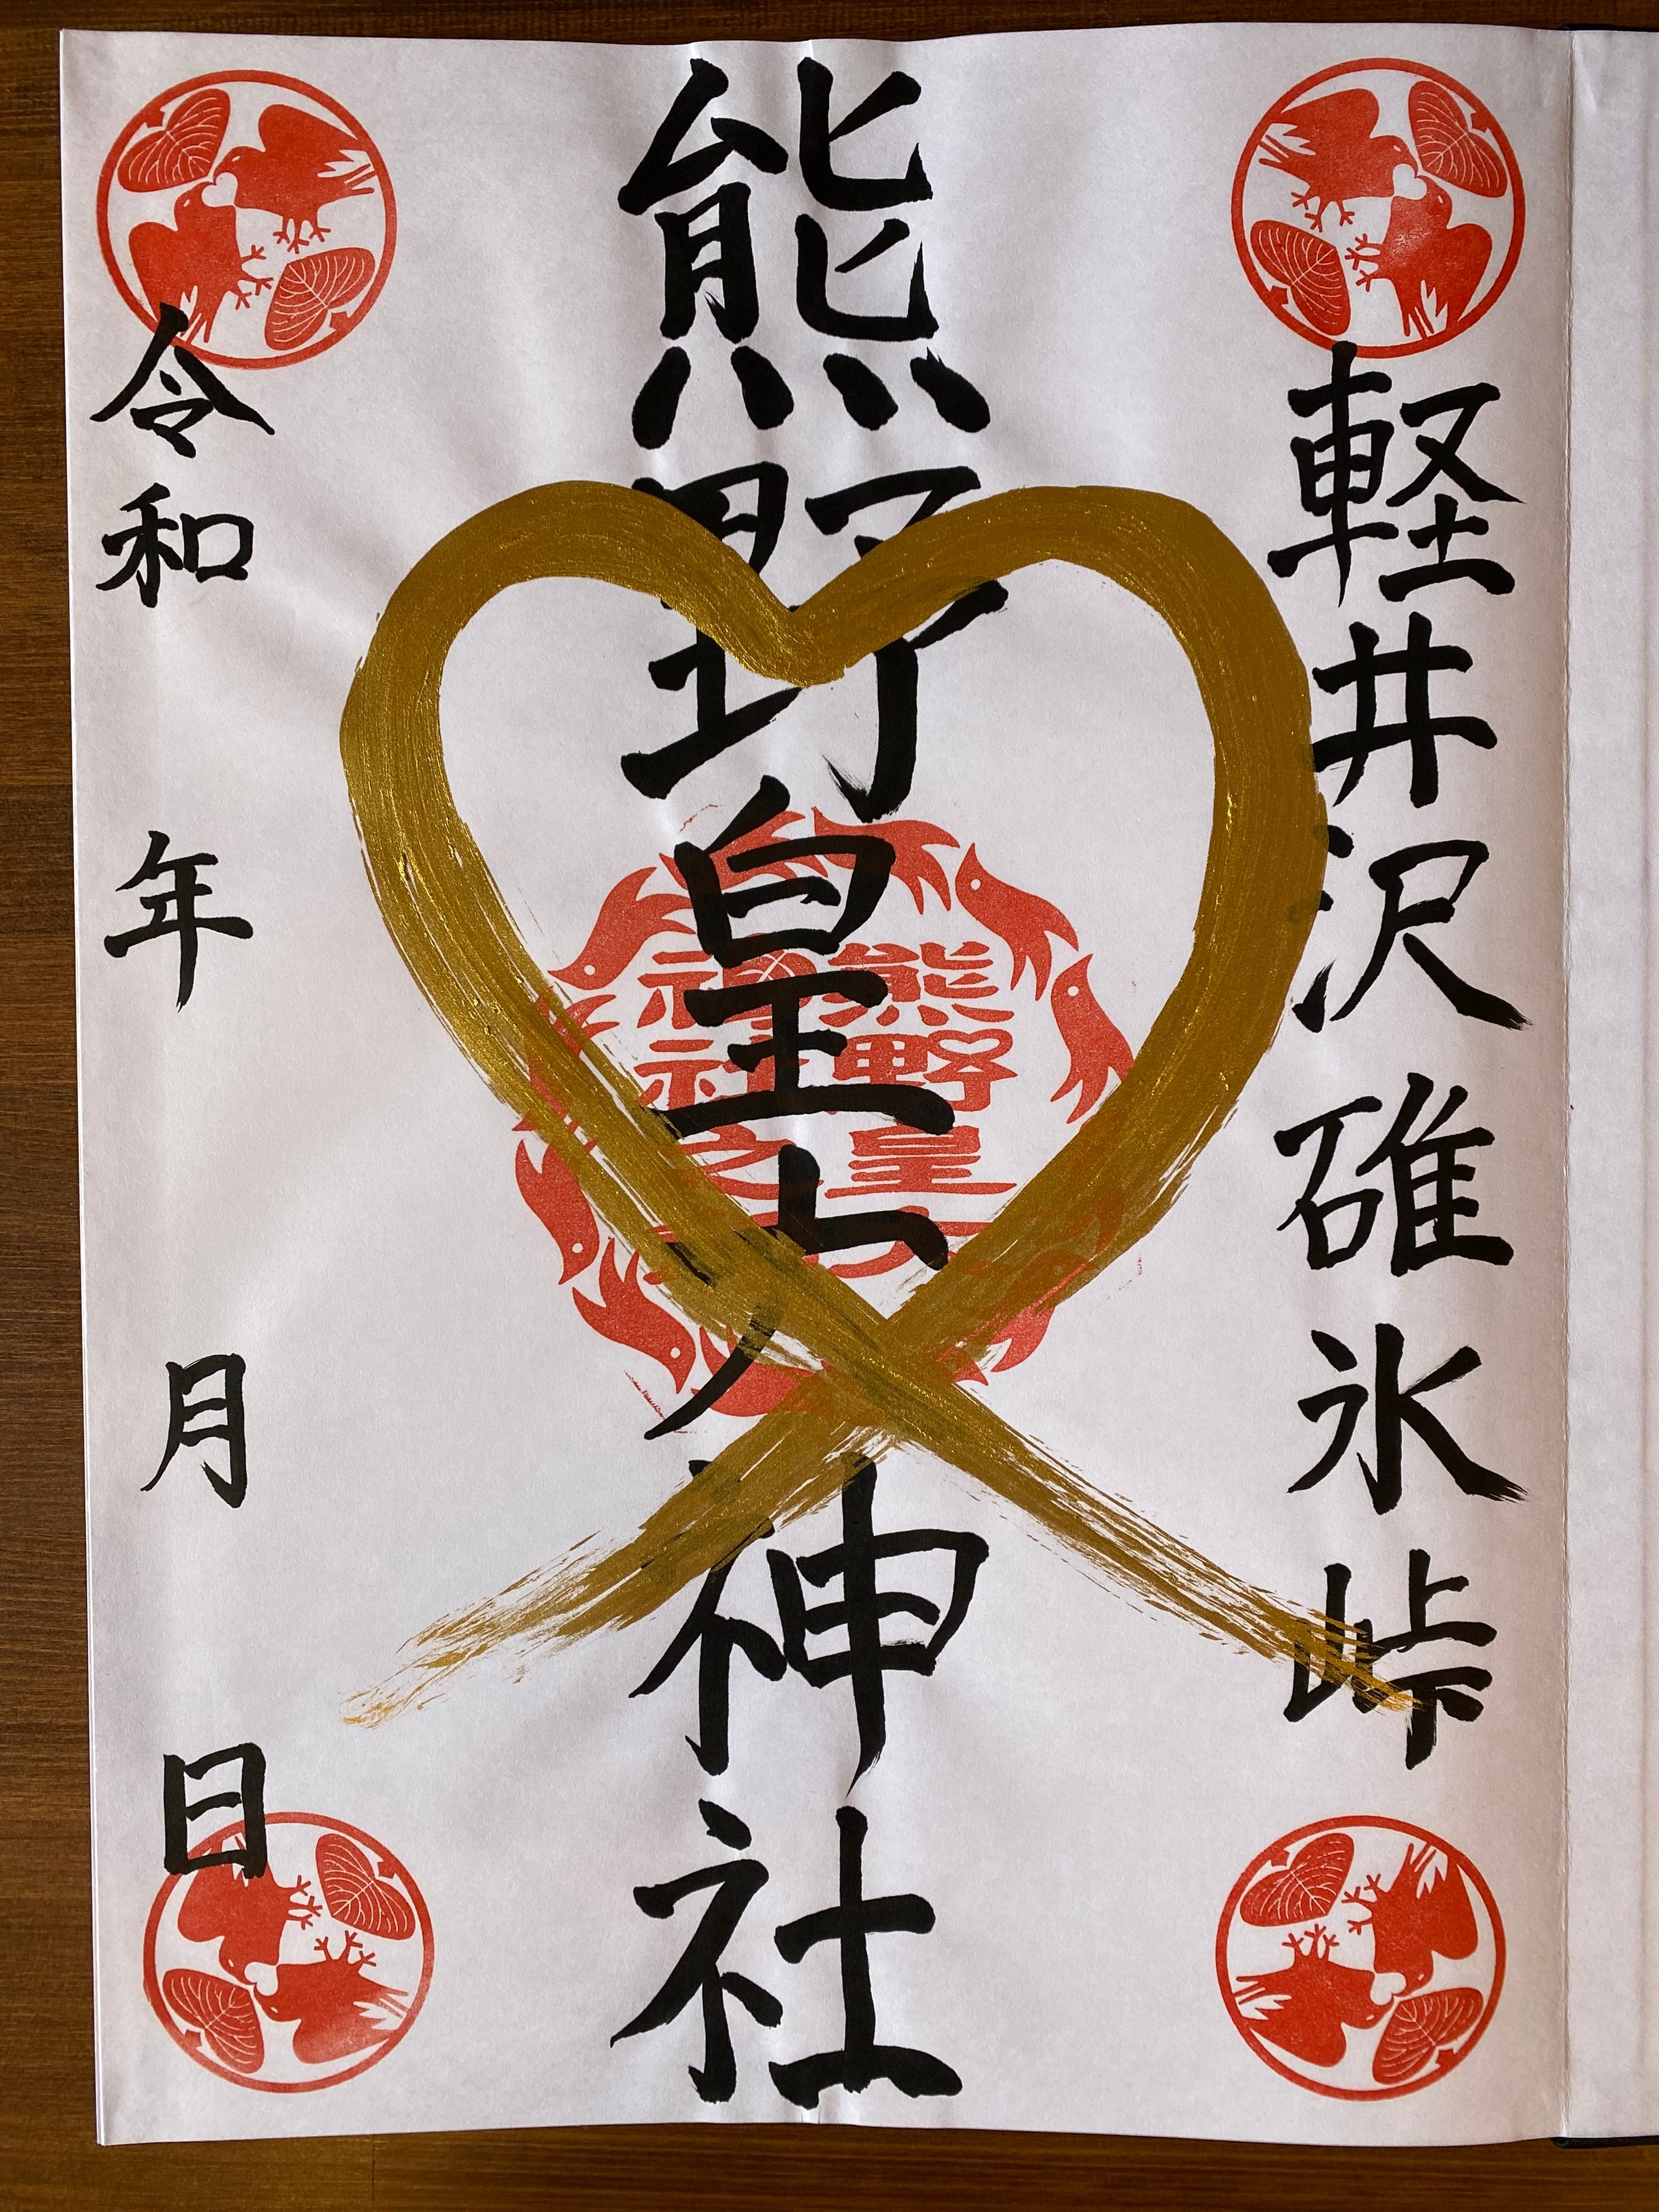 軽井沢碓氷峠
熊野皇大神社
熊野皇大
神社之
令和 年 月 日